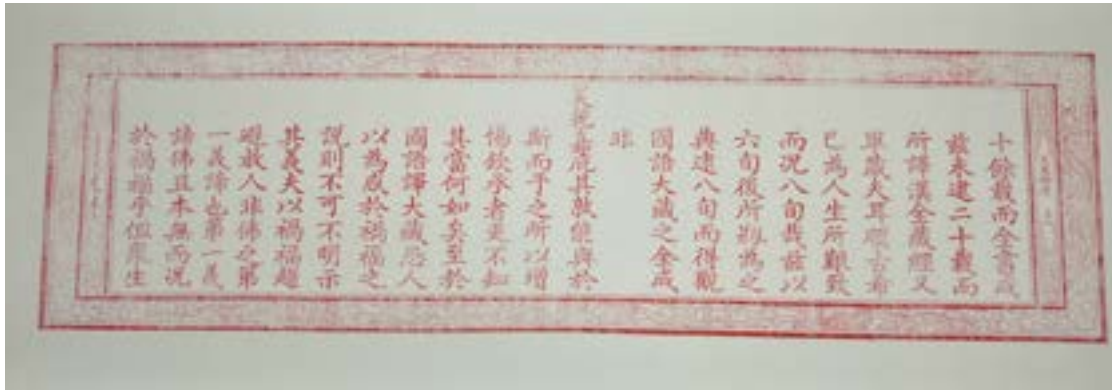 十餘載而全書成
茲未逮二十載而
所譯漢全藏經又
畢歲夫耳順古希
已為人生所艱致
而況八旬哉茲以
六旬後所辦為之
典逮八旬而得觀
國語大藏之全成
非
天恩垂庇其孰能與於
斯而予之所以增
惕欽承者更不知
其當何如矣至於
國語譯大藏恐人
以為惑於禍福之
說則不可不明示
其義夫以禍福趨
避教人非佛之第
一義諦也第一義
諦佛且本無而況
於禍福乎但眾生